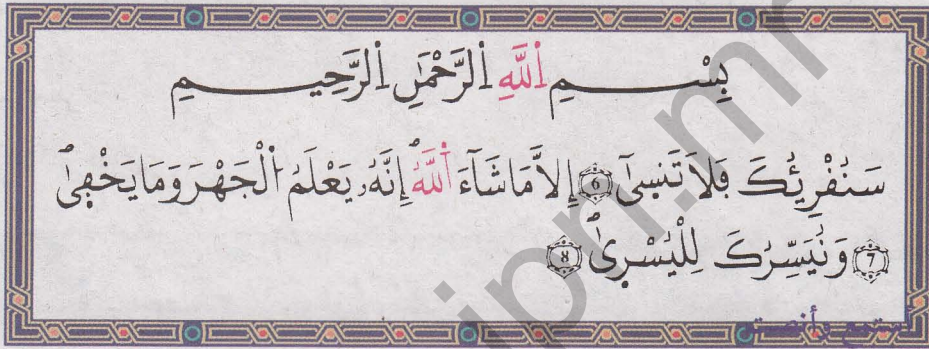 بِسْمِ اِللَّهِ اِلرَّحْمَٰنِ اِلرَّحِيمِ
سَنُقْرِئُكَ فَلَا تَنسِىٰٓ 6 إِلاَّ مَا شَآءَ اَللَّهُ إِنَّهُۥ يَعْلَمُ اُلْجَهْرَ وَمَا يَخْفِىٰ
7 وَنُيَسِّرُكَ لِلْيُسْرِىٰ 8
وأنصت
ipn.mr